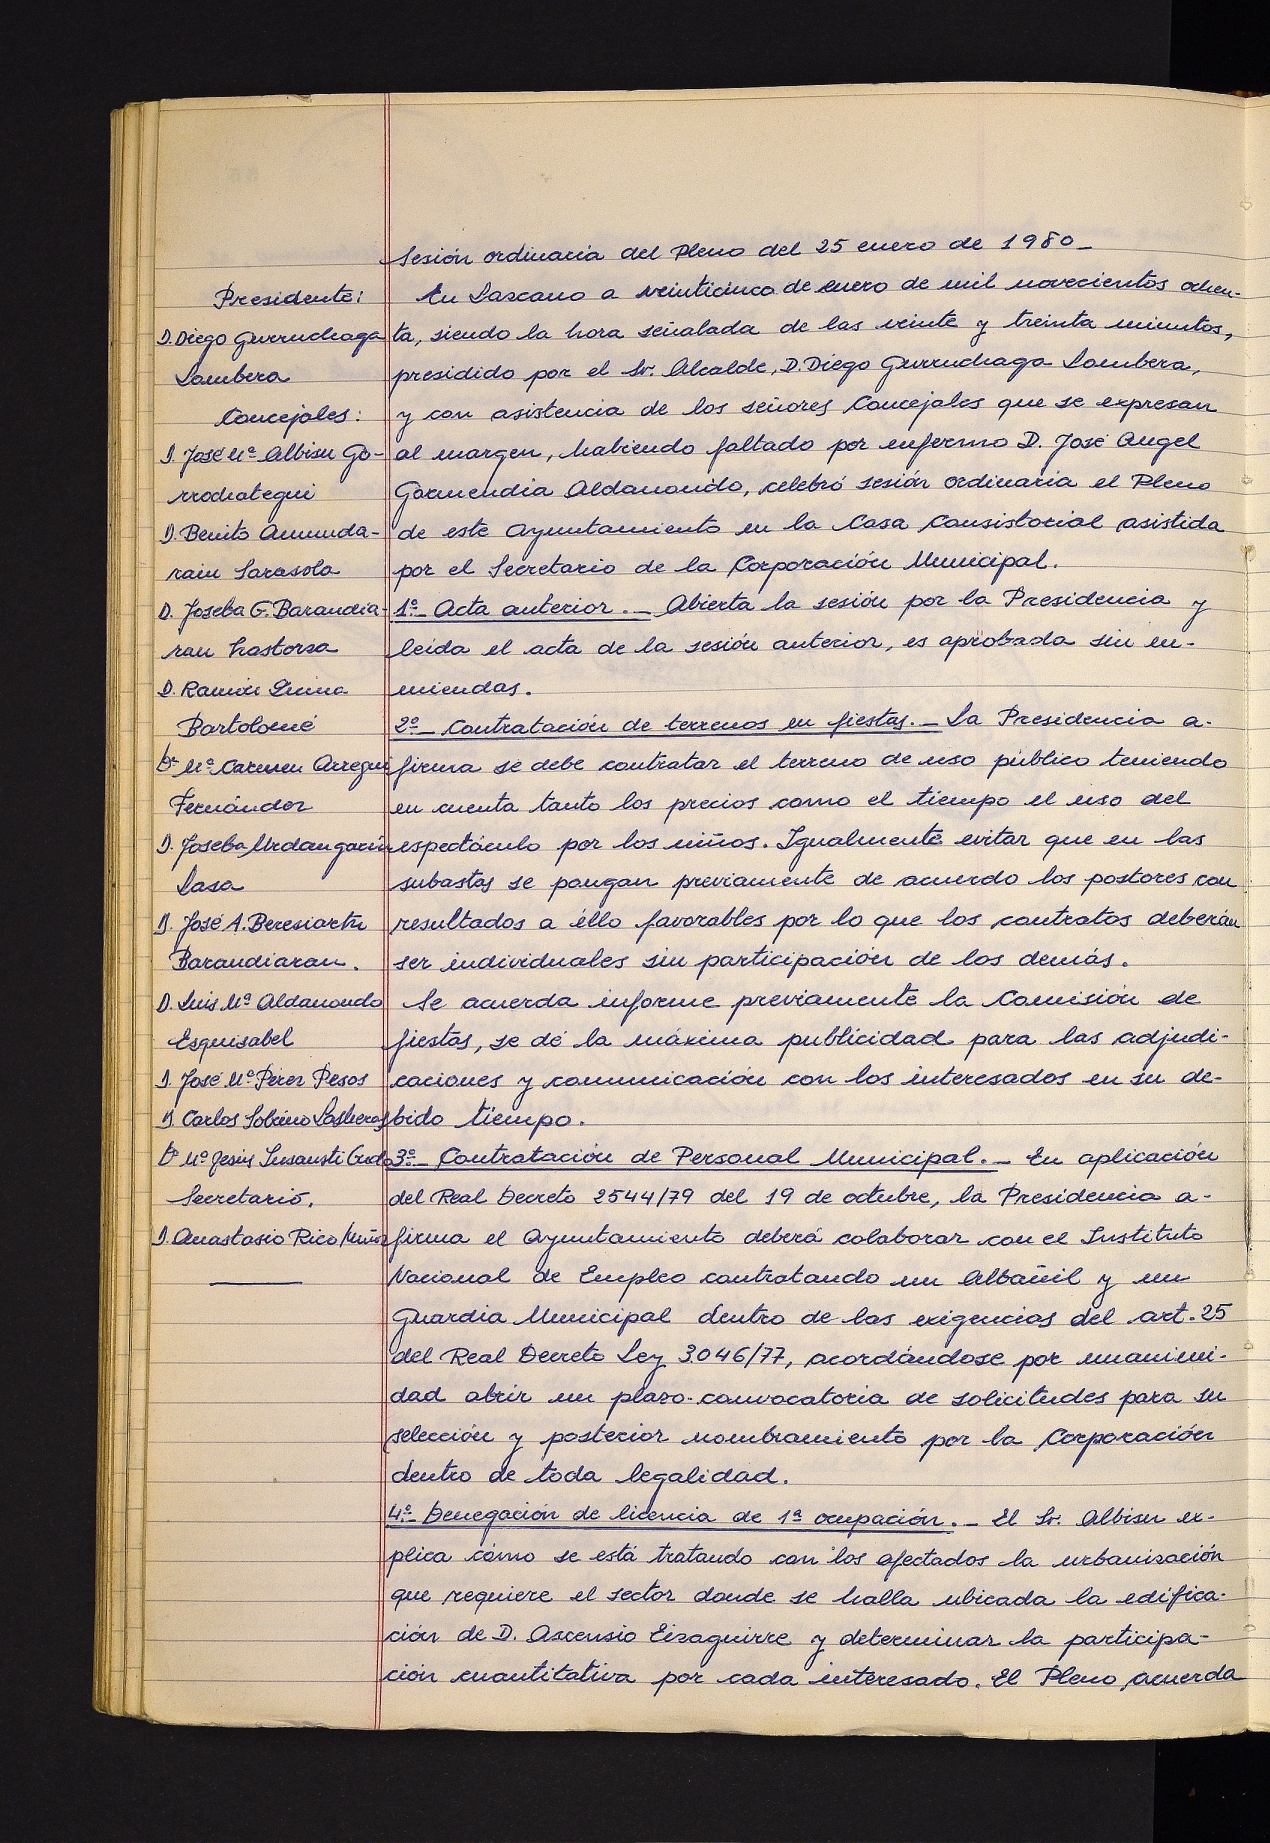 Sesión ordinaria del Pleno del 25 enero de 1980_
Presidente:
D. Diego Gurruchaga
Lambera
Concejales:
D. José Mª Albisu Go-
rrochategui
D. Benito Amunda-
rain Sarasola
D. Joseba G. Barandia-
ran Lastorza
D. Ramón
Bartolomé
Dª Mª Carmen Arregui
Fernández
D. Joseba Urdangarin
Lasa
D. José A. Beresiartu
Barandiaran.
D. Luis Mª Aldanondo
Esquisabel
D. José Mª Pérez Pesos
D. Carlos Sobrino Lasheras
Dª Mª Jesús Insausti
Secretario.
D. Anastasio Rico Muñoz
En Lazcano a veinticinco de enero de mil novecientos ochen-
ta, siendo la hora señalada de las veinte y treinta minutos,
presidido por el Sr. Alcalde, D. Diego Gurruchaga Lambera,
y con asistencia de los señores Concejales que se expresan
al margen, habiendo faltado por enfermo D. José Angel
Garmendia Aldanondo, celebró sesión ordinaria el Pleno
de este Ayuntamiento en la Casa Consistorial asistida
por el Secretario de la Corporación Municipal.
1º_ Acta anterior._ Abierta la sesión por la Presidencia y
leída el acta de la sesión anterior, es aprobada sin en-
miendas.
2º_ Contratación de terrenos en fiestas._ La Presidencia a-
firma se debe contratar el terreno de uso público teniendo
en cuenta tanto los precios como el tiempo el uso del
espectáculo por los niños. Igualmente evitar que en las
subastas se pongan previamente de acuerdo los postores con
resultados a éllo favorables por lo que los contratos deberán
ser individuales sin participación de los demás.
Se acuerda informe previamente la Comisión de
fiestas, se dé la máxima publicidad para las adjudi-
caciones y comunicación con los interesados en su de-
bido tiempo.
3º_ Contratación de Personal Municipal._ En aplicación
del Real Decreto 2544/79 del 19 de octubre, la Presidencia a-
firma el Ayuntamiento deberá colaborar con el Instituto
Nacional de Empleo contratando un Albañil y un
Guardia Municipal dentro de las exigencias del art. 25
del Real Decreto Ley 3.046/77, acordándose por unanimi-
dad abrir un plazo-convocatoria de solicitudes para su
selección y posterior nombramiento por la Corporación
dentro de toda legalidad.
4º_ Denegación de licencia de 1ª ocupación._ El Sr. Albisu ex-
plica cómo se está tratando con los afectados la urbanización
que requiere el sector donde se halla ubicada la edifica-
ción de D. Ascensio Eizaguirre y determinar la participa-
ción cuantitativa por cada interesado. El Pleno acuerda